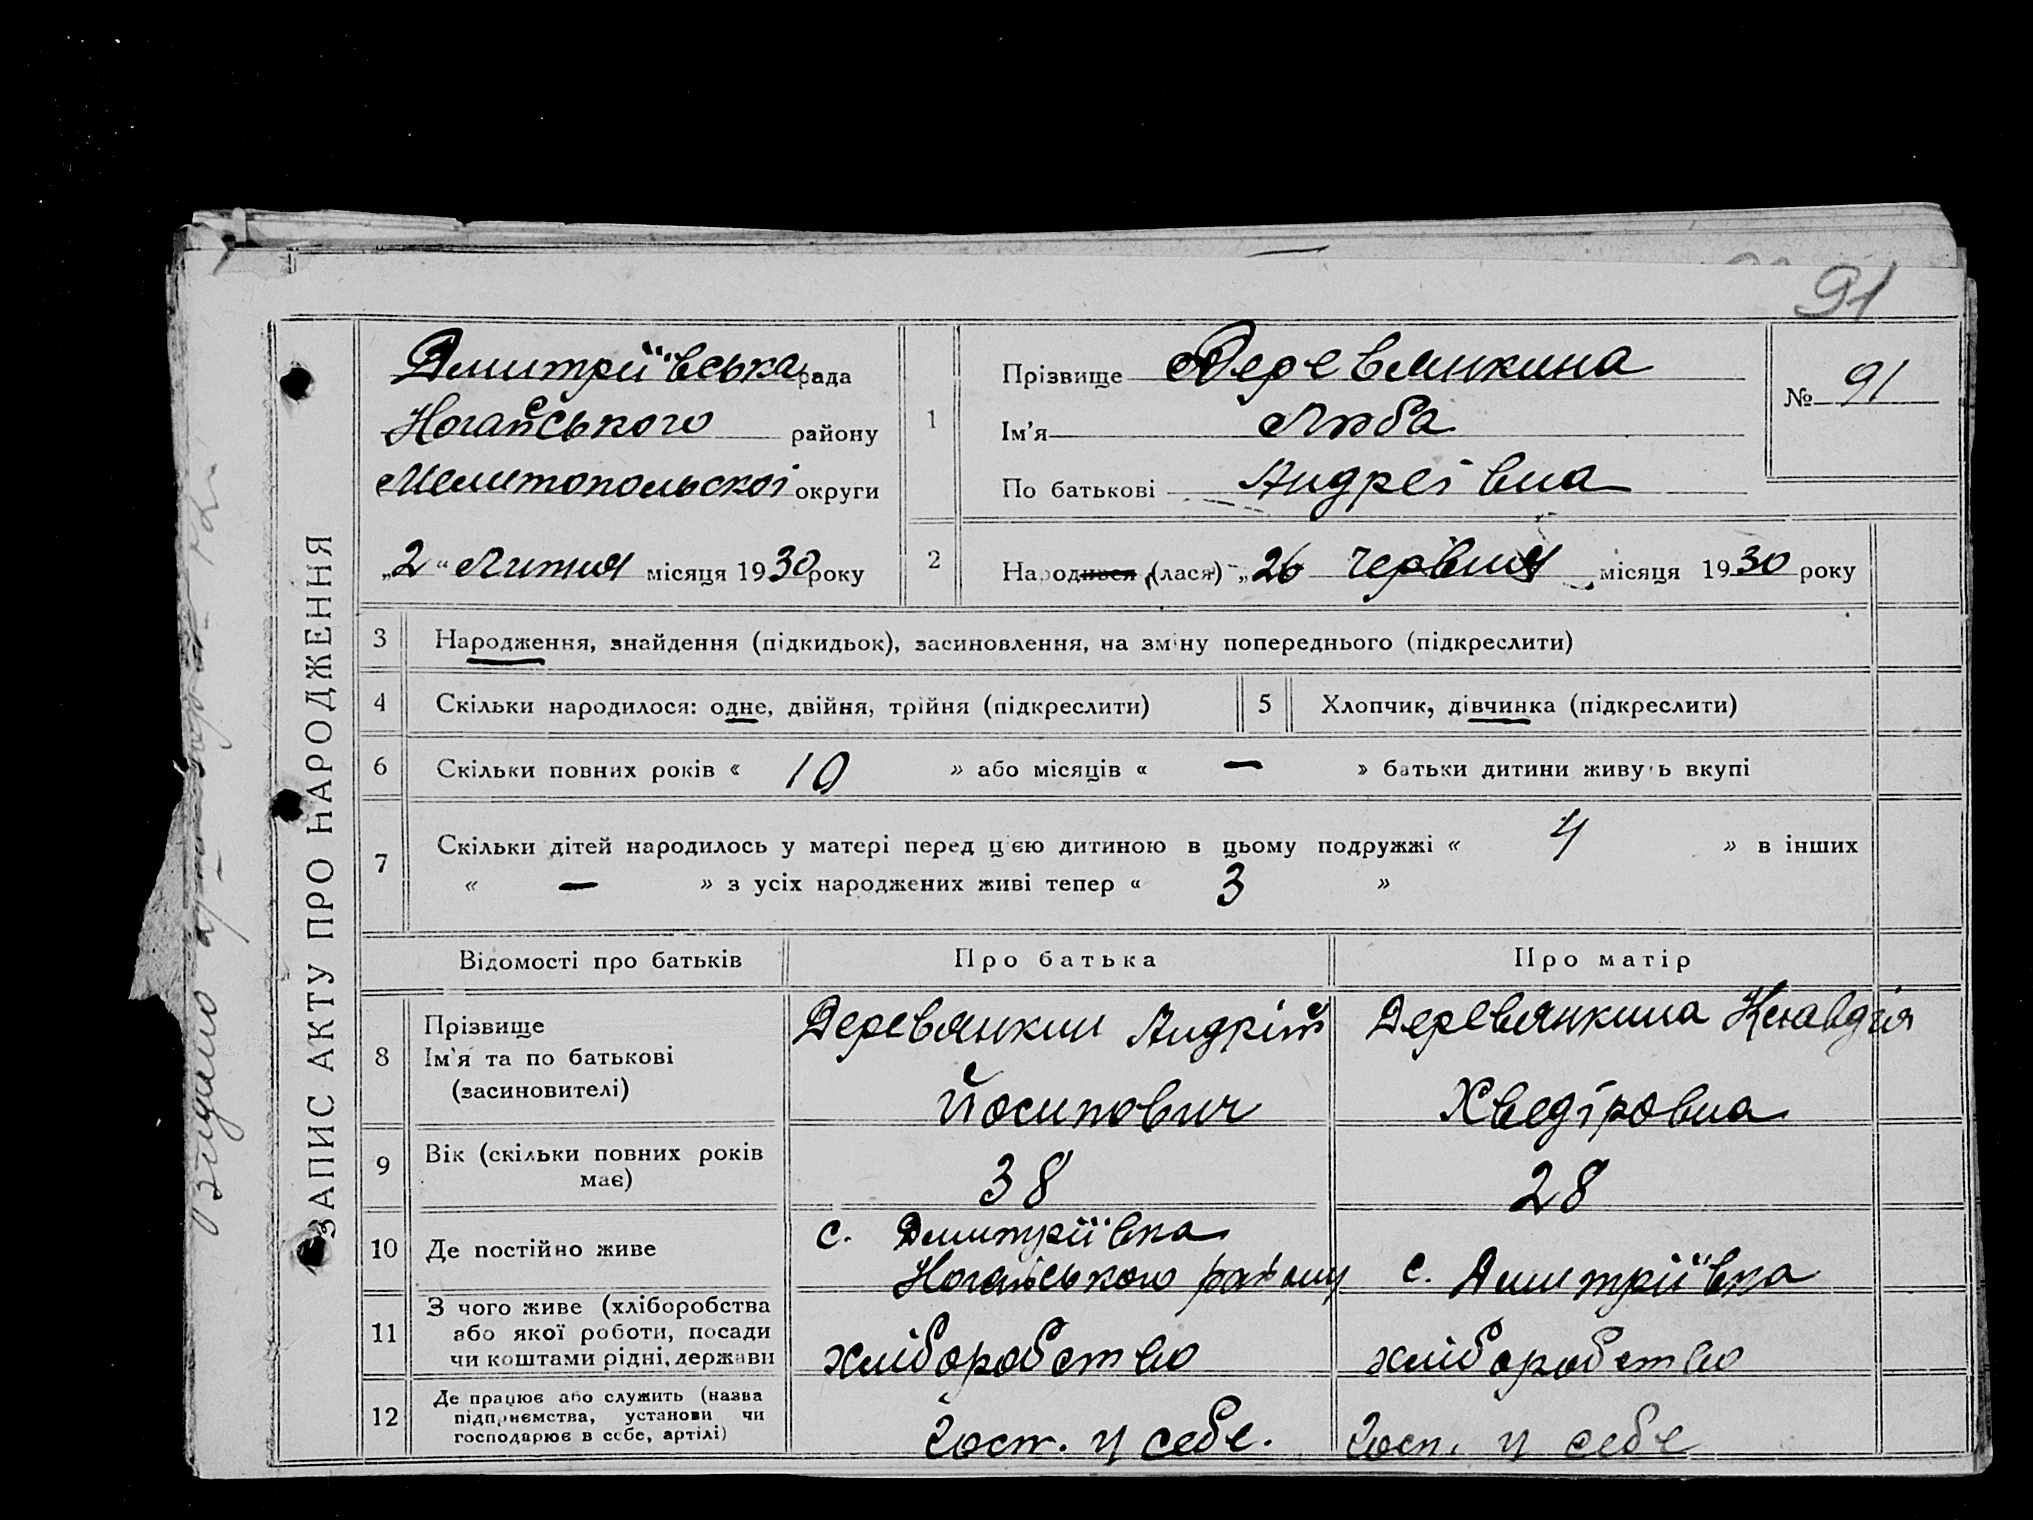 91
Дмитріївська рада
Ногайського району
Мелитопольскоі округи
„2“ Липня місяця 1930 року
1
Прізвище Деревянкина
Ім'я Люба
По батькові Андреівна
№ 91
2
Народився (лася) „26 Червня місяця 1930 року
ЗАПИС АКТУ ПРО НАРОДЖЕННЯ
3 Народження, знайдення (підкидьок), засиновлення, на зміну попереднього (підкреслити)
4 Скільки народилося: одне, двійня, трійня (підкреслити) 5 Хлопчик, дівчинка (підкреслити)
6 Скільки повних років « 10 » або місяців « — » батьки дитини живуть вкупі
7 Скільки дітей народилось у матері перед цією дитиною в цьому подружжі « 4 » в інших
« — » з усіх народжених живі тепер « 3 »
Відомості про батьків Про батька Про матір
8
Прізвище
Ім'я та по батькові
(засиновителі)
Деревянкин Андрій
Йосипович
Деревянкина Клавдія
Хведіровна
9
Вік (скільки повних років
має)
38
28
10 Де постійно живе
с. Дмитріївка
Ногайського району
с. Дмитріївка
11
З чого живе (хліборобства
або якої роботи, посади
чи коштами рідні, держави
хліборобство
хліборобство
12
Де працює або служить (назва
підприємства, установи чи
господарює в себе, артілі)
Госп. у себе.
Госп. у себе